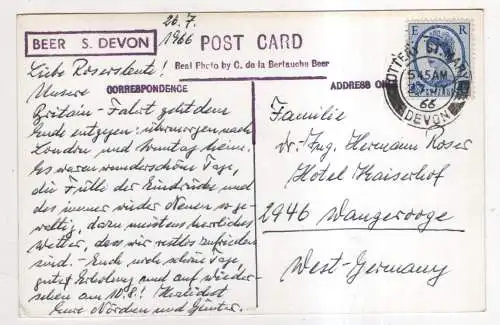 20.7.
1966
BEER S. DEVON
POST CARD
Real Photo by C. de la Bertauche Beer
CORRESPONDENCE
ADDRESS ON
E R
OTTERY ST MARY
545AM
66
DEVON
Liebe Rosersleute!
Unsere
Britain-Fahrt geht dem
Ende entgegen: übermorgen nach
London und Sonntag heim.
Es waren wunderschöne Tage,
die Fülle der Eindrücke und
des immer wieder Neuen so ge-
waltig, dazu meistens herrliches
Wetter, dass wir restlos zufrieden
sind. - Euch noch schöne Tage,
gute Erholung und auf wieder-
sehen am W.S.! Herzlichst
Eure Nörden und Günter.
Familie
Dr. Ing. Hermann Roser
Hotel Kaiserhof
2946 Wangerooge
West-Germany